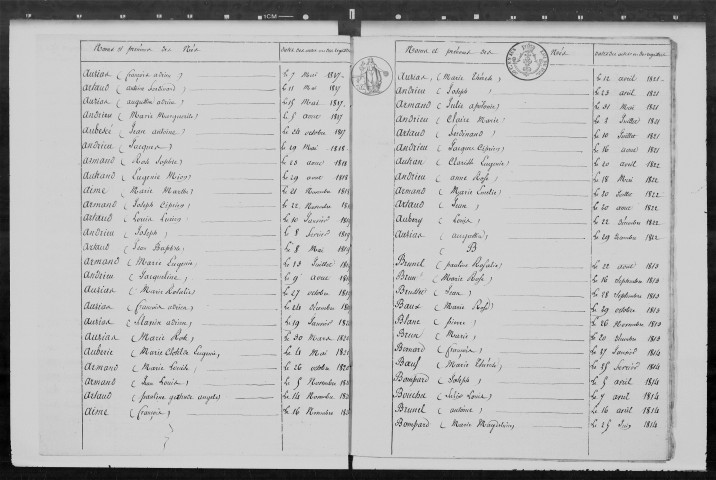 Noms et prénoms des Nés
Aurias (françois adrien) Le 7 Mai 1817
Artaud (antoine ferdinand) Le 11 Mai 1817
Aurias (augustin adrien) Le 15 Mai 1817
Andrieu (Marie Marguerite) Le 5 aout 1817
Aubesi (Jean antoine) Le 24 octobre 1817
Andrieu (Jacques) Le 29 Mai 1818
Armand (Rose Sophie) Le 23 aout 1818
Autrand (Eugenie) Le 29 aout 1818
Aime (Marie Marthe) Le 21 Novembre 1818
Armand (Joseph Ciprien) Le 22 Novembre
Artaud (Louis) Le 10 Janvier
Andrieu (Joseph) Le 8 fevrier
Artaud (Jean Baptiste) Le 8 Mai
Armand (Marie Eugenie) Le 13 Juillet
Andrieu (Jacqueline) Le 9 aout
Aurias (Marie Rosalie) Le 27 octobre
Aurias (françois adrien) Le 24 décembre
Aurias (adrien) Le 19 Janvier
Aurias (Marie Rose) Le 30 Mars
Auberic (Marie Clotilde Eugenie) Le 4 Mai
Armand (Marie) Le 26 octobre
Armand (Jean Louis) Le 5 Novembre
Artaud (pauline) Le 14 Novembre
Aime (françois) Le 16 Novembre
Noms et prénoms des Nés
Aurias (Marie Thérèse) Le 12 avril 1821
Andrieu (Joseph) Le 23 avril 1821
Armand (Julie apolonie) Le 31 Mai 1821
Andrieu (Claire Marie) Le 2 Juillet 1821
Artaud (ferdinand) Le 10 Juillet 1821
Andrieu (Jacques Ciprien) Le 16 aout 1821
Autran (Clarisse Eugenie) Le 20 avril 1822
Andrieu (anne Rose) Le 18 Mai 1822
Armand (Marie) Le 20 Juillet 1822
Artaud (Jean) Le 20 aout 1822
Aubery (Louis) Le 22 Décembre 1822
Aurias (augustin) Le 29 Décembre 1822
B
Brunel (pauline Rosalie) Le 22 aout 1813
Brun (Marie Rose) Le 16 Septembre 1813
(Jean) Le 28 Septembre 1813
Baux (Marie Rose) Le 29 octobre 1813
Blanc (pierre) Le 26 Novembre 1813
Brun (Marie) Le 20 Décembre 1813
Bernard (françois) Le 27 Janvier 1814
Bœuf (Marie Thérèse) Le 25 fevrier 1814
Bompard (Joseph) Le 5 avril 1814
Bouche (Louis) Le 7 avril 1814
Brunel (antoine) Le 16 avril 1814
Bompard (Marie Magdeleine) Le 25 Juin 1814